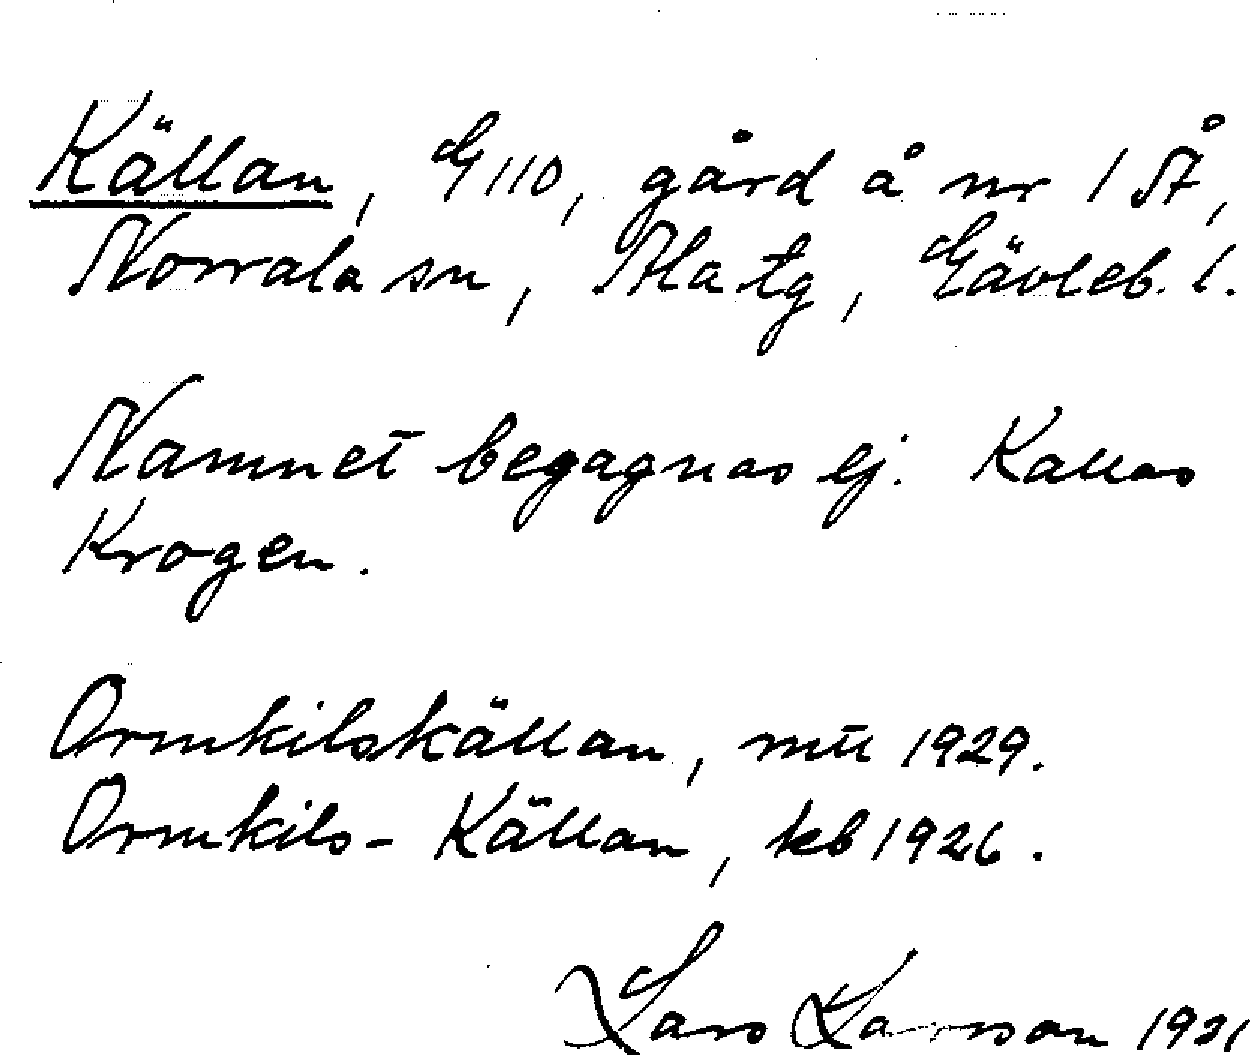 Källan, G110, gård å nr 1 Å,
Norrala sn, Ala tg, Gävleb. l.
Namnet begagnas ej. Kallas
Krogen.
Ormkilskällan, mtl 1929.
Ormkils-Källan, kb 1926.
Lars Larsson 1931